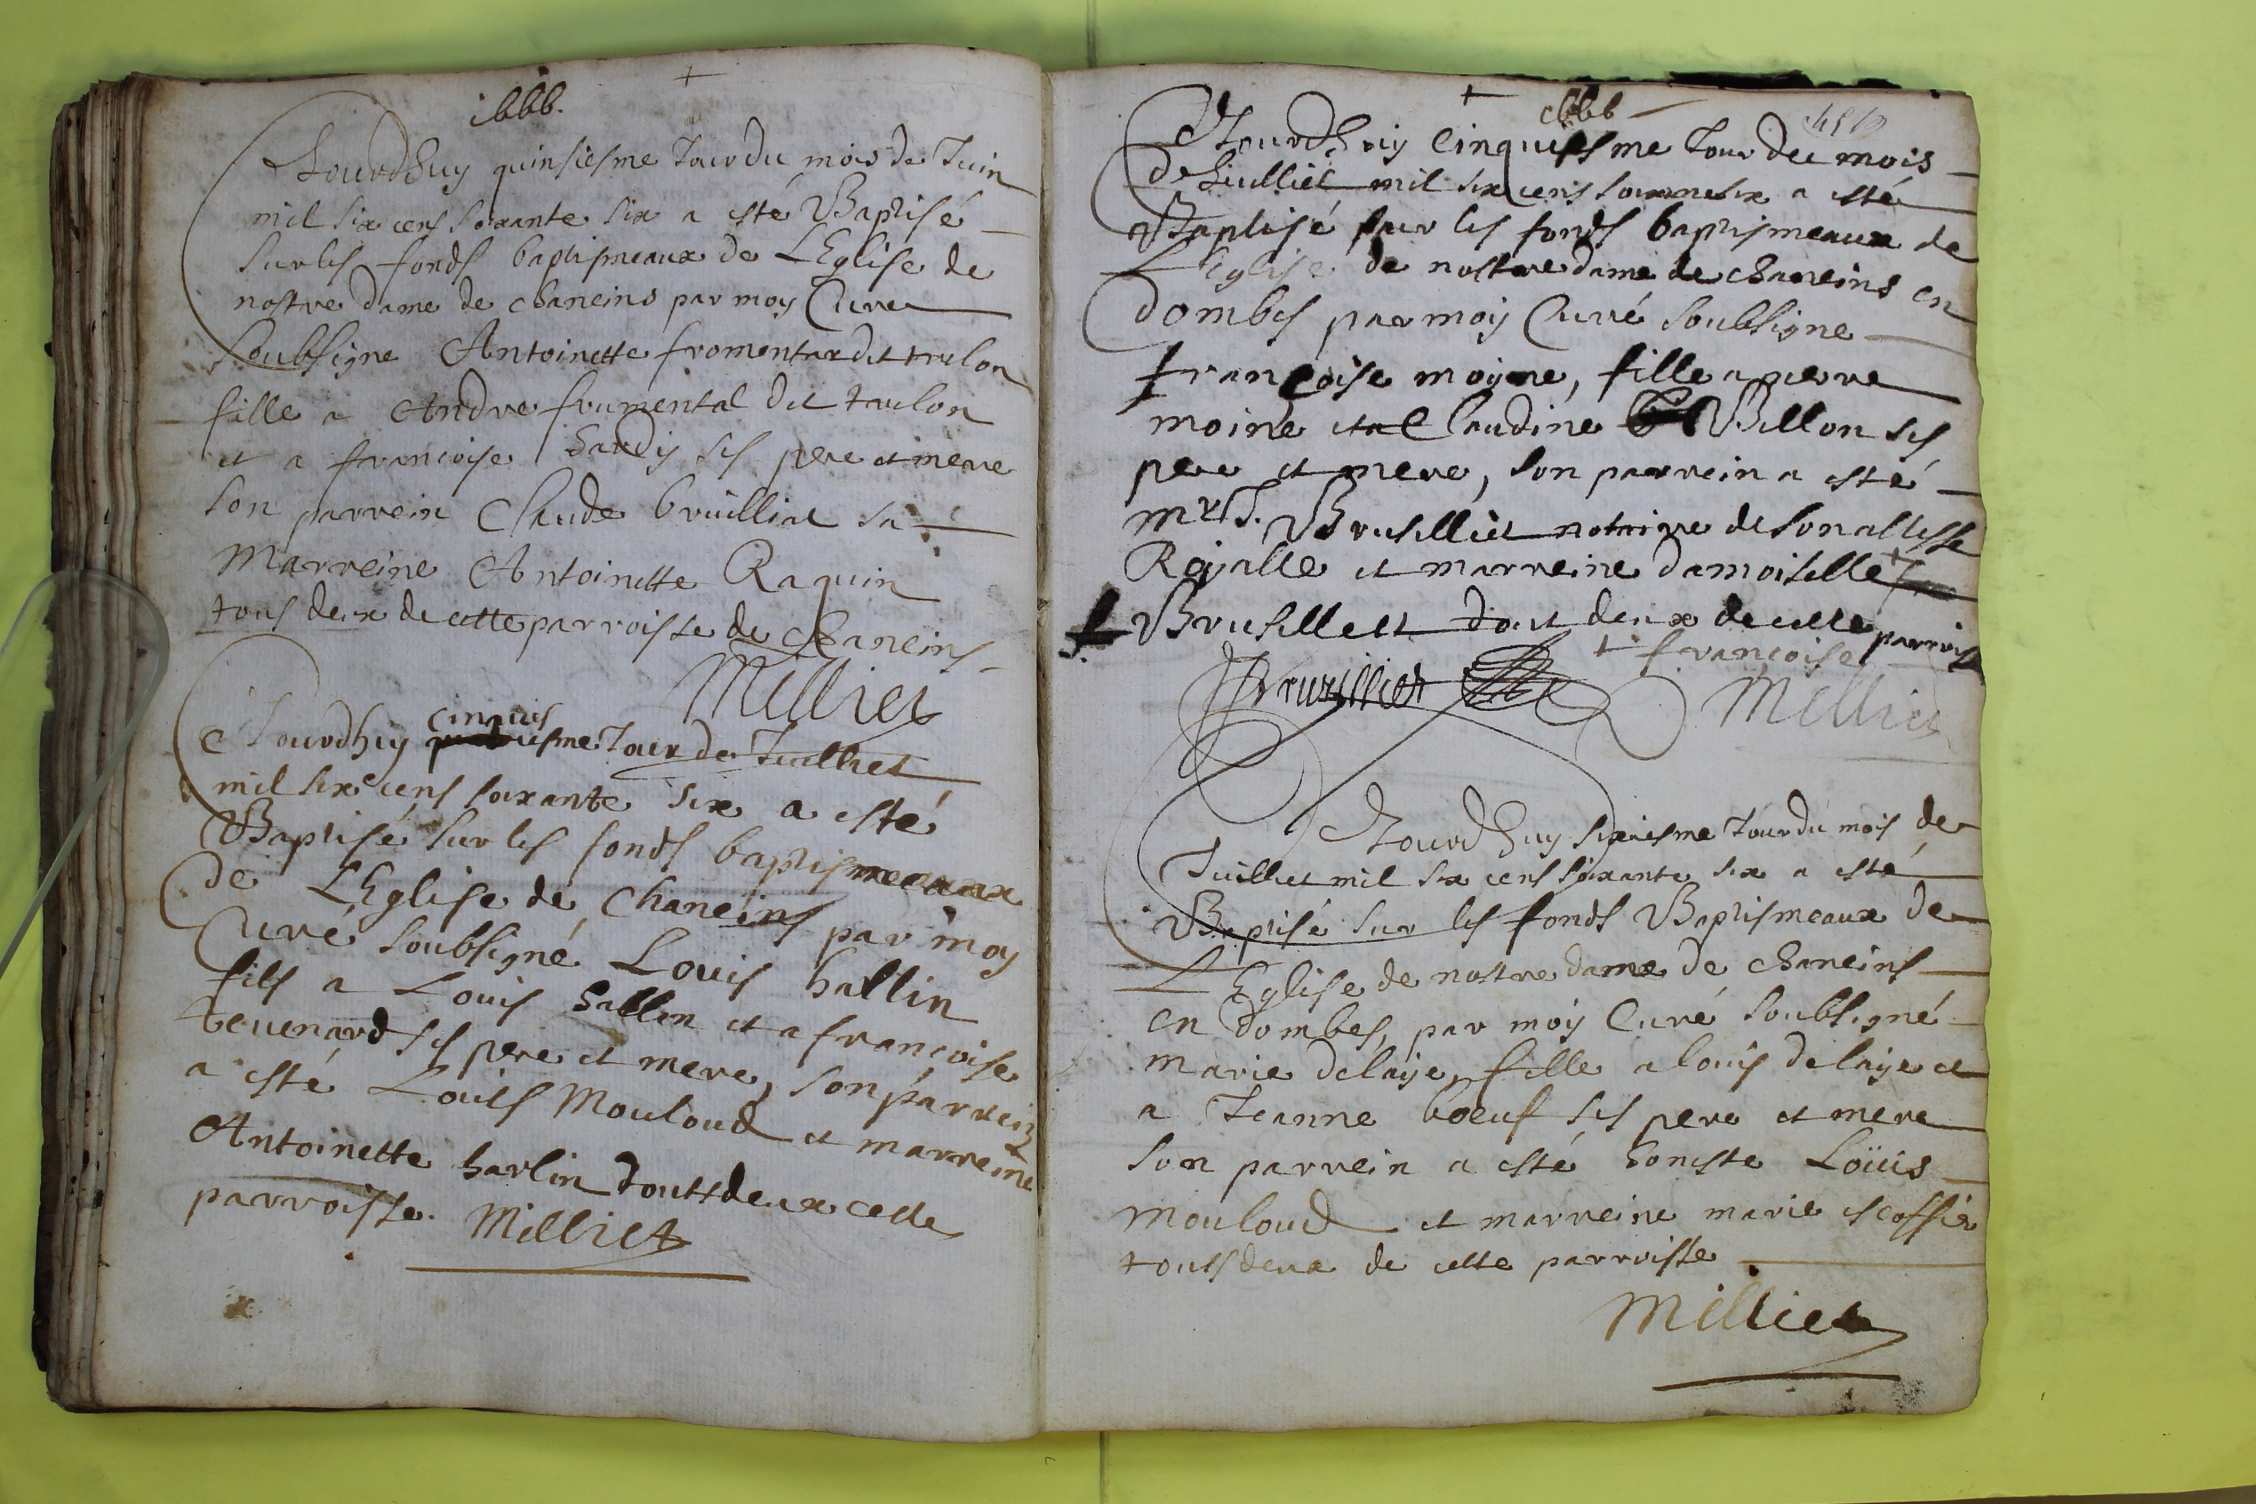 1666.
Jourdhuy quinsiesme Jour du mois de Juin
mil six cens soixante six a esté Baptisé
sur les fonds baptismeaux de LEglise de
nostre dame de chaneins par moy Curé
soubsigne Antoinette fromentar dit
fille a Andre frumental dit taulon
et a francoise hardy ses pere et mere
son parrein Claude bruilliat sa
Marreine Antoinette Raquin
tous deux de cette parroisse de chaneins
Milliet
Jourdhuy cinquiesme Jour de Juilliet
mil six cens soixante six a esté
Baptisé sur les fonds baptismeaux
de LEglise de Chaneins par moy
Curé soubsigné Louis hallin
fils a Louis hallin et a françoise
teuenard ses pere et mere, son parrein
a esté Louis Mouloud et marreine
Antoinette harlin touts deux cette
parroisse. Milliet
1666
Jourdhuy Cinquiesme Jour du mois
de Juilliet mil six cens soixante six a esté
Baptisé sur les fonds baptismeaux de
L'Eglise de nostre dame de chaneins en
dombes par moy Curé soubsigne
françoise moyne, fille a pierre
moine et a Claudine Billon ses
pere et mere, son parrein a esté
Mr J. Brusilliet notaire de son altesse
Royalle et marreine damoiselle +
Brusilliet tout deux de cette parroisse
+ françoise
JBruzilliet Milliet
Jourdhuy sixiesme Jour du mois de
Juilliet mil six cens soixante six a esté
Baptisé sur les fonds Baptismeaux de
L'Eglise de nostre dame de chaneins
en dombes, par moy Curé soubsigné
marie delaye, fille a louis delaye et
a Jeanne boeuf ses pere et mere
son parrein a esté honeste Loüis
mouloud et marreine marie escoffier
touts deux de cette parroisse
Milliet